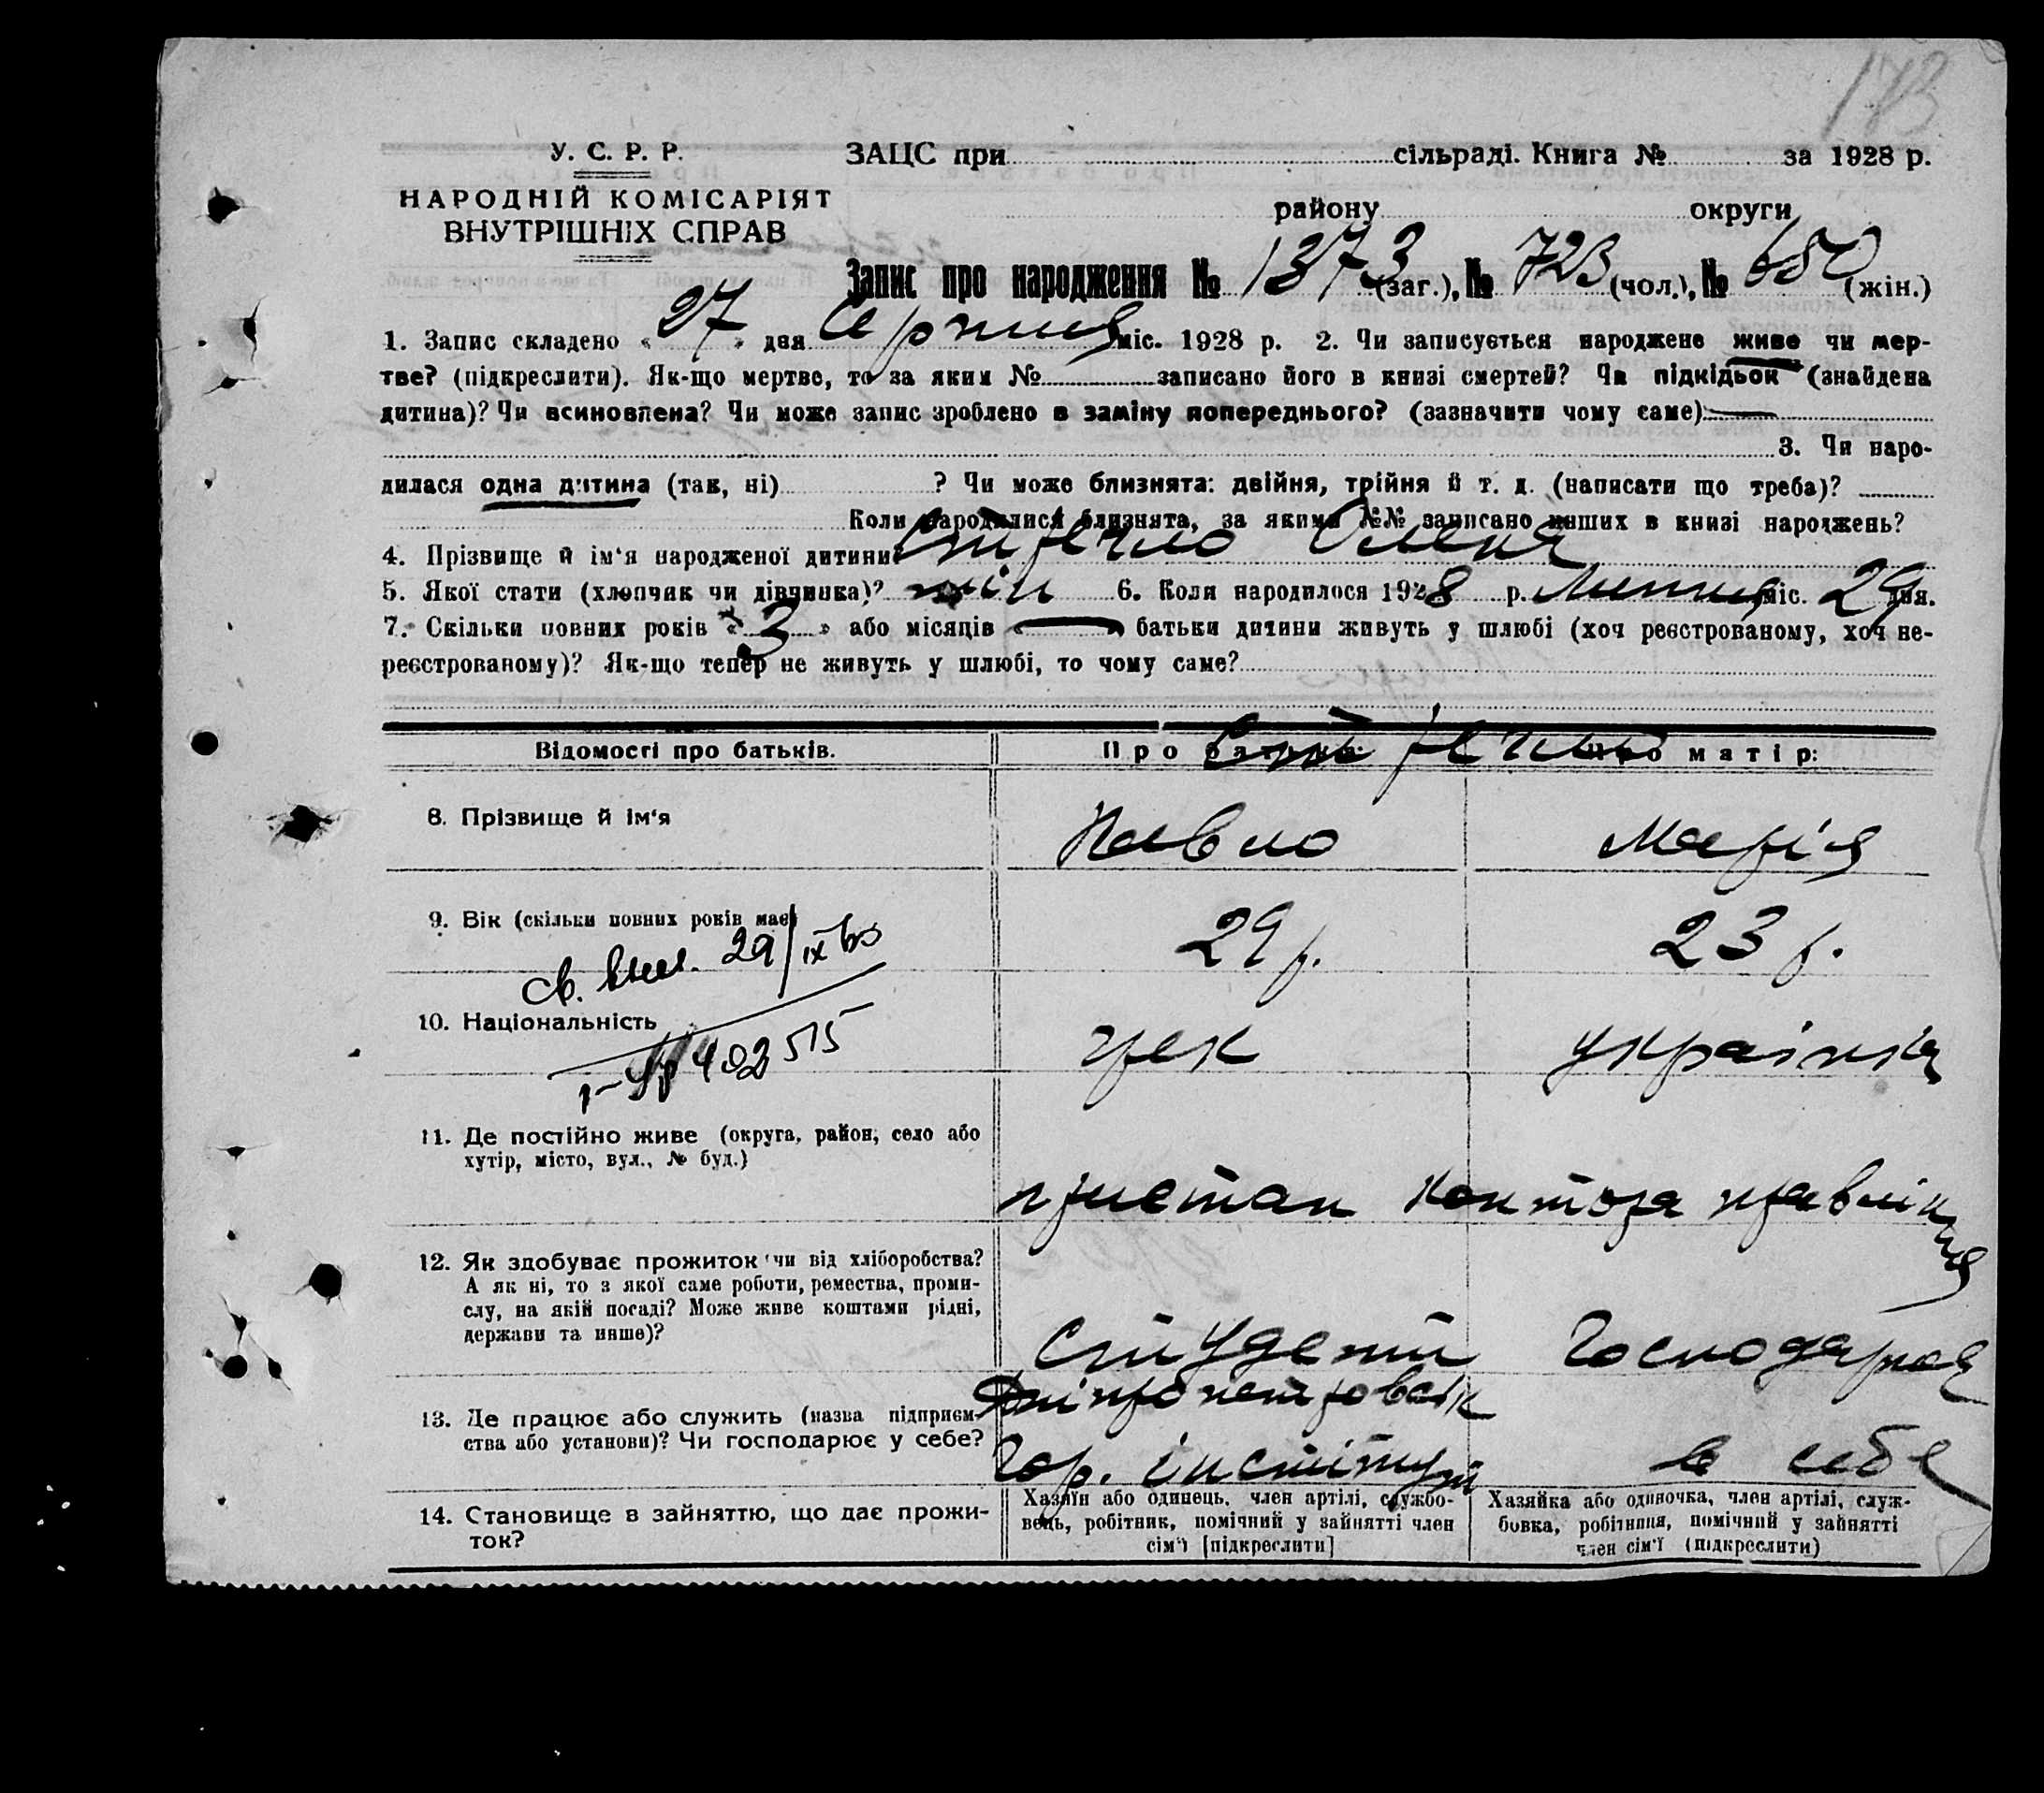 173
У. С. Р. Р.
НАРОДНІЙ КОМІСАРІЯТ
ВНУТРІШНІХ СПРАВ
ЗАЦС при сільраді. Книга № за 1928 р.
району округи
Запис про народження № 1373 (заг.), № 723 (чол.), № 650 (жін.)
1. Запис складено « 27 » дня Серпня міс. 1928 р. 2. Чи записується народжене живе чи мер-
тве? (підкреслити). Як-що мертве, то за яким № записано його в книзі смертей? Чи підкідьок (знайдена
дитина)? Чи всиновлена? Чи може запис зроблено в заміну попереднього? (зазначити чому саме) —
3. Чи наро-
дилася одна дитина (так, ні) ? Чи може близнята: двійня, трійня й т. д. (написати що треба)?
Коли народилися близнята, за якими №№ записано инших в книзі народжень?
4. Прізвище й ім‘я народженої дитини Олена
5. Якої стати (хлопчик чи дівчинка)? жін 6. Коли народилося 1928 р. Липня міс. 29 дня.
7. Скільки повних років « 3 » або місяців « — » батьки дитини живуть у шлюбі (хоч реєстрованому, хоч не-
реєстрованому)? Як-що тепер не живуть у шлюбі, то чому саме?
Відомості про батьків. Про батька: Про матір:
8. Прізвище й ім‘я Павло Марія
9. Вік (скільки повних років має) 29 р. 23 р.
св. 29/IX
10. Національність грек українка
402515
11. Де постійно живе (округа, район, село або
хутір, місто, вул., № буд.)
пристан контора правління
12. Як здобуває прожиток (чи від хліборобства?
А як ні, то з якої саме роботи, ремества, проми-
слу, на якій посаді? Може живе коштами рідні,
держави та инше)?
Студент Господарка
13. Де працює або служить (назва підприєм-
ства або установи)? Чи господарює у себе?
Дніпропетровськ
Гор. інститут в себе
14. Становище в зайняттю, що дає прожи-
ток?
Хазяїн або одинець, член артілі, службо-
вець, робітник, помічний у зайнятті член
сім‘ї [підкреслити]
Хазяйка або одиночка, член артілі, служ-
бовка, робітниця, помічний у зайнятті
член сім‘ї (підкреслити)